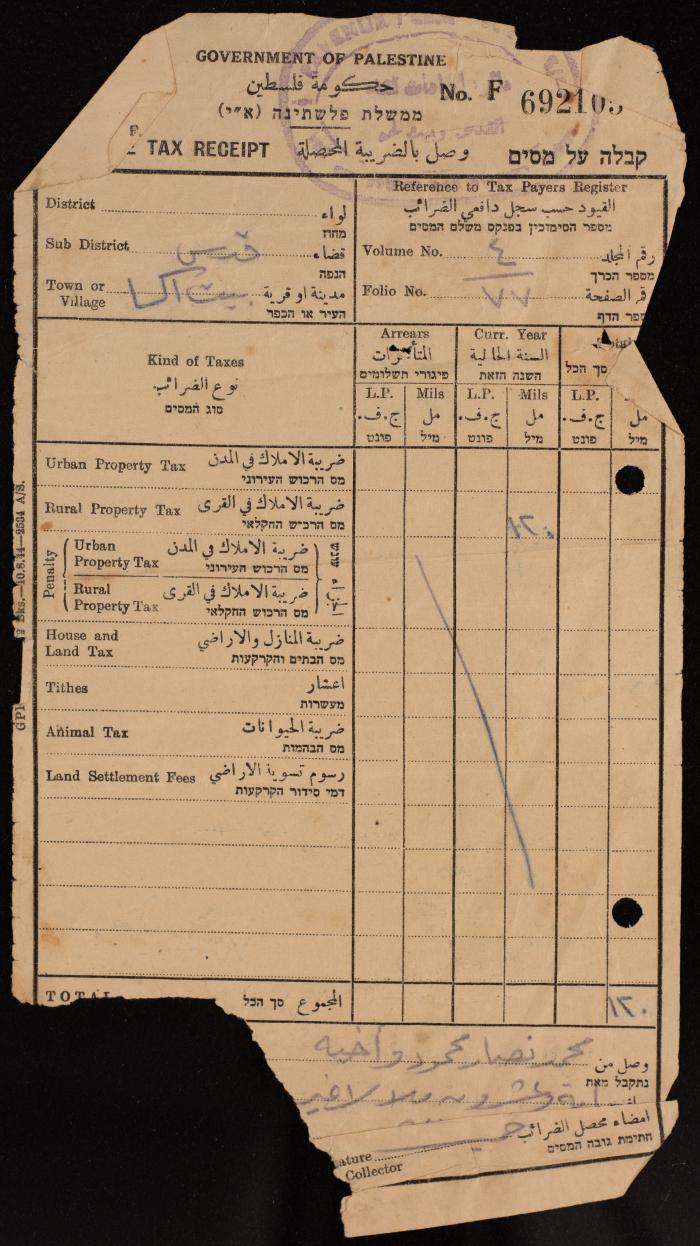 GOVERNMENT OF PALESTINE
حكومة فلسطين
No. F 692105
ממשלת פלשתינה (א״י)
TAX RECEIPT وصل بالضريبة المحصلة קבלה על מסים
Reference to Tax Payers Register
القيود حسب سجل دافعي الضرائب
מספר הסימוכין בפנקס משלם המסים
District لواء
מחוז
Sub District قدس قضاء
הנפה
Town or Village بيت اكسا مدينة او قرية
העיר או הכפר
Volume No. ٤ رقم المجلد
מספר הכרך
Folio No. ٧٧ قم الصفحة
ספר הדף
Kind of Taxes
نوع الضرائب
סוג המסים
Arrears
المتأخرات
פיגורי תשלומים
Curr. Year
السنة الحالية
השנה הזאת
סך הכל
L.P. Mils L.P. Mils L.P.
ج.ف. مل ج.ف. مل ج.ف. مل
פונט מיל פונט מיל פונט מיל
Urban Property Tax ضريبة الاملاك في المدن
מס הרכוש העירוני
Rural Property Tax ضريبة الاملاك في القرى ١٢٠
מס הרכוש החקלאי
Penalty
Urban Property Tax ضريبة الاملاك في المدن
מס הרכוש העירוני
Rural Property Tax ضريبة الاملاك في القرى
מס הרכוש החקלאי
עונש
House and Land Tax ضريبة المنازل والاراضي
מס הבתים והקרקעות
Tithes اعشار
מעשרות
Animal Tax ضريبة الحيوانات
מס הבהמות
Land Settlement Fees رسوم تسوية الاراضي
דמי סידור הקרקעות
TOTAL المجموع סך הכל ١٢٠
وصل من محمد نصار محمود واخيه
נתקבל מאת
امضاء محصل الضرائب
חתימת גובה המסים
ature
Collector
Bks.—10.8.44—2534 A/S.